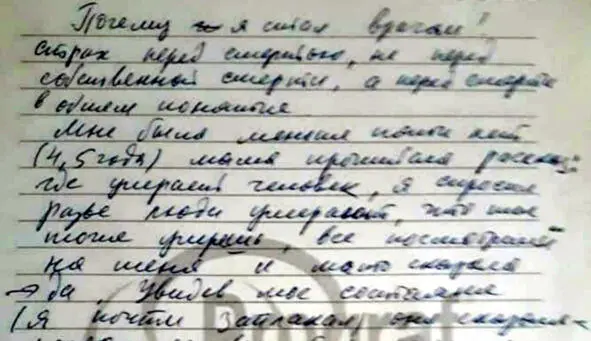 Почему я стал врачом?
страх перед смертью, не перед
собственной смерти, а перед смерти
в общем понятия
Мне было меньше пяти лет
(4,5 года) мама прочитала рассказ:
где умирает человек, я спросил
разве люди умерают, что мы
тоже умрешь, все посмотрели
на меня и мать сказала
→ да, Увидев мое состояние
(я почти заплакал) она сказала